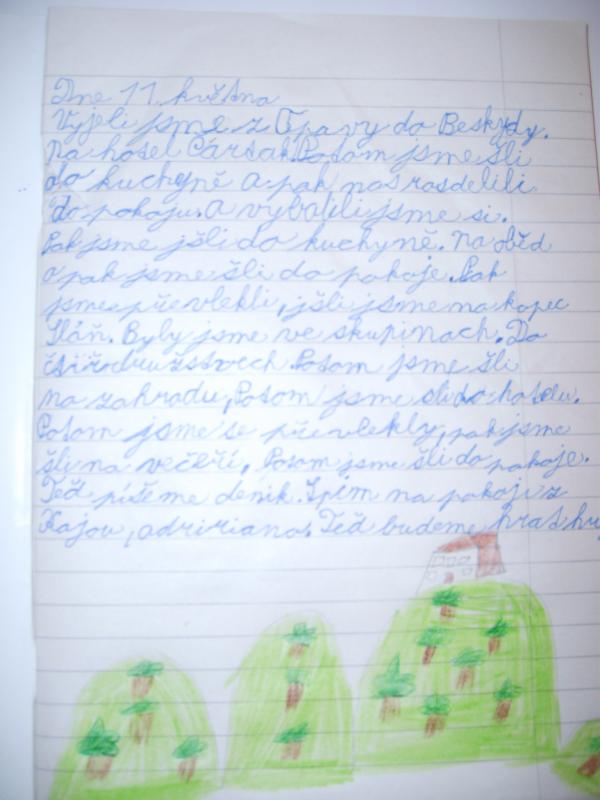 Dne 11. května
Vyjeli jsme z Opavy do Beskydy.
na hotel Čarťák. Potom jsme šli
do kuchyně a pak nás rosdelili
do pokoju. a vybalili jsme si.
Pak jsme jšli do kuchyně. na oběd
a pak jsme šli do pokoje. Pak
jsme se převlekli, jšli jsme na kopec
Sláň. Byly jsme ve skupinach. Do
čtiř družstvech Potom jsme šli
na zahradu, Potom jsme sli do hotelu.
Potom jsme se převlekly, pak jsme
šli na večeří. Potom jsme šli do pokoje.
Teď píšeme denik. Spím na pokoji z
Kajou, adririano. Teď budeme hrat